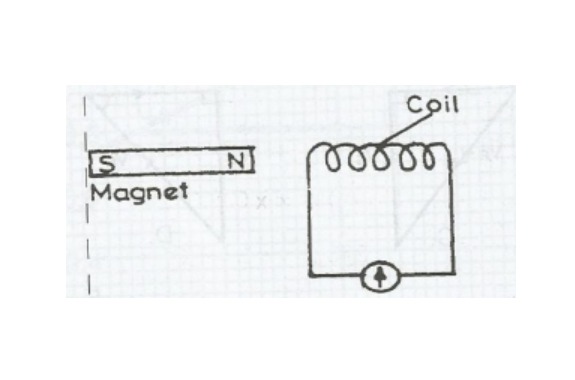 Coil
S N
Magnet